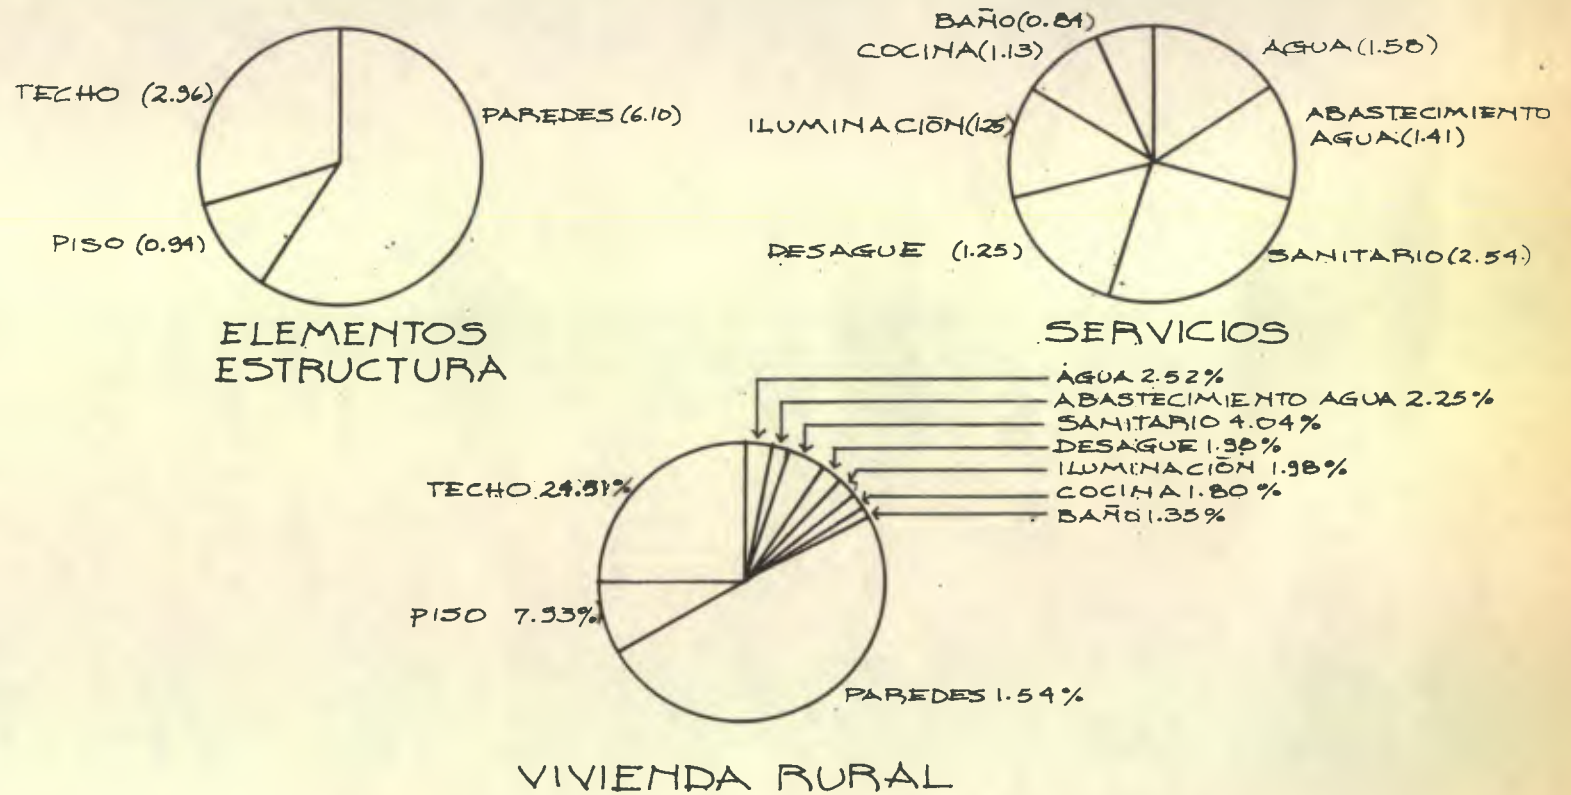 TECHO (2.96)
PAREDES (6.10)
PISO (0.94)
ELEMENTOS
ESTRUCTURA
BAÑO (0.84)
COCINA (1.13)
ILUMINACIÓN (1.25)
DESAGUE (1.25)
AGUA (1.58)
ABASTECIMIENTO
AGUA (1.41)
SANITARIO (2.54)
SERVICIOS
AGUA 2.52%
ABASTECIMIENTO AGUA 2.25%
SANITARIO 4.04%
DESAGUE 1.98%
ILUMINACIÓN 1.98%
COCINA 1.80%
BAÑO 1.35%
TECHO 24.91%
PISO 7.93%
PAREDES 1.54%
VIVIENDA RURAL